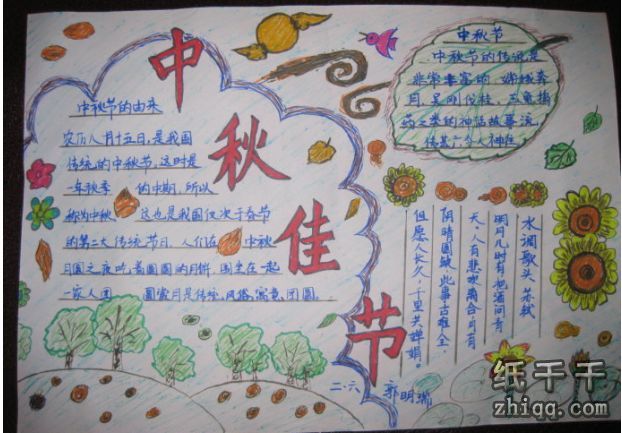 中秋佳节
中秋节的由来
农历八月十五日,是我国
传统的中秋节,这时是
一年秋季 的中期,所以
称为中秋 这也是我国仅次于春节
的第二大传统节日,人们在 中秋
月圆之夜吃着圆圆的月饼,围坐在一起
一家人团 圆赏月是传统,风格,寓意,团圆。
中秋节
中秋节的传说是
非常丰富的,嫦娥奔
月,吴刚伐桂,玉兔捣
药之类的神话故事流
传甚广
水调歌头 苏轼
明月几时有把酒问青
天,人有悲欢离合月有
阴晴圆缺,此事古难全,
但愿人长久,千里共婵娟。
二.六 郭明瑞
纸千千
zhiqq.com